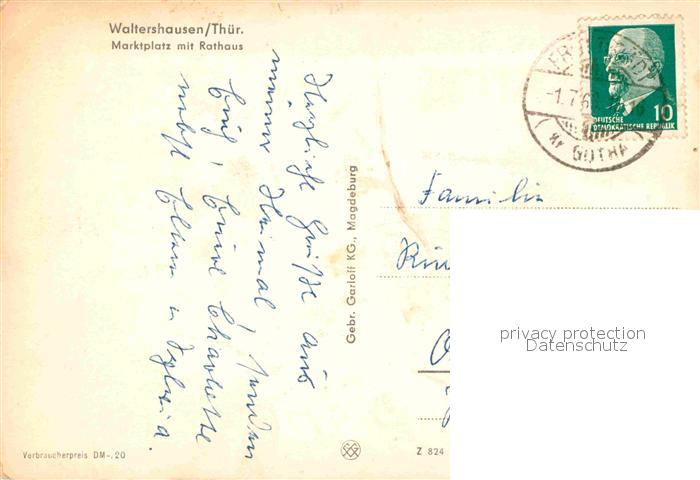 Waltershausen/Thür.
Marktplatz mit Rathaus
Herzliche Grüße aus
meiner Heimat senden
Euch! Eure Charlotte
nebst Eltern u.
Gebr. Garloff KG., Magdeburg
DEUTSCHE
DEMOKRATISCHE REPUBLIK
10
-1.7.6
GOTHA
Familie
privacy protection
Datenschutz
Verbraucherpreis DM-,20
Z 824